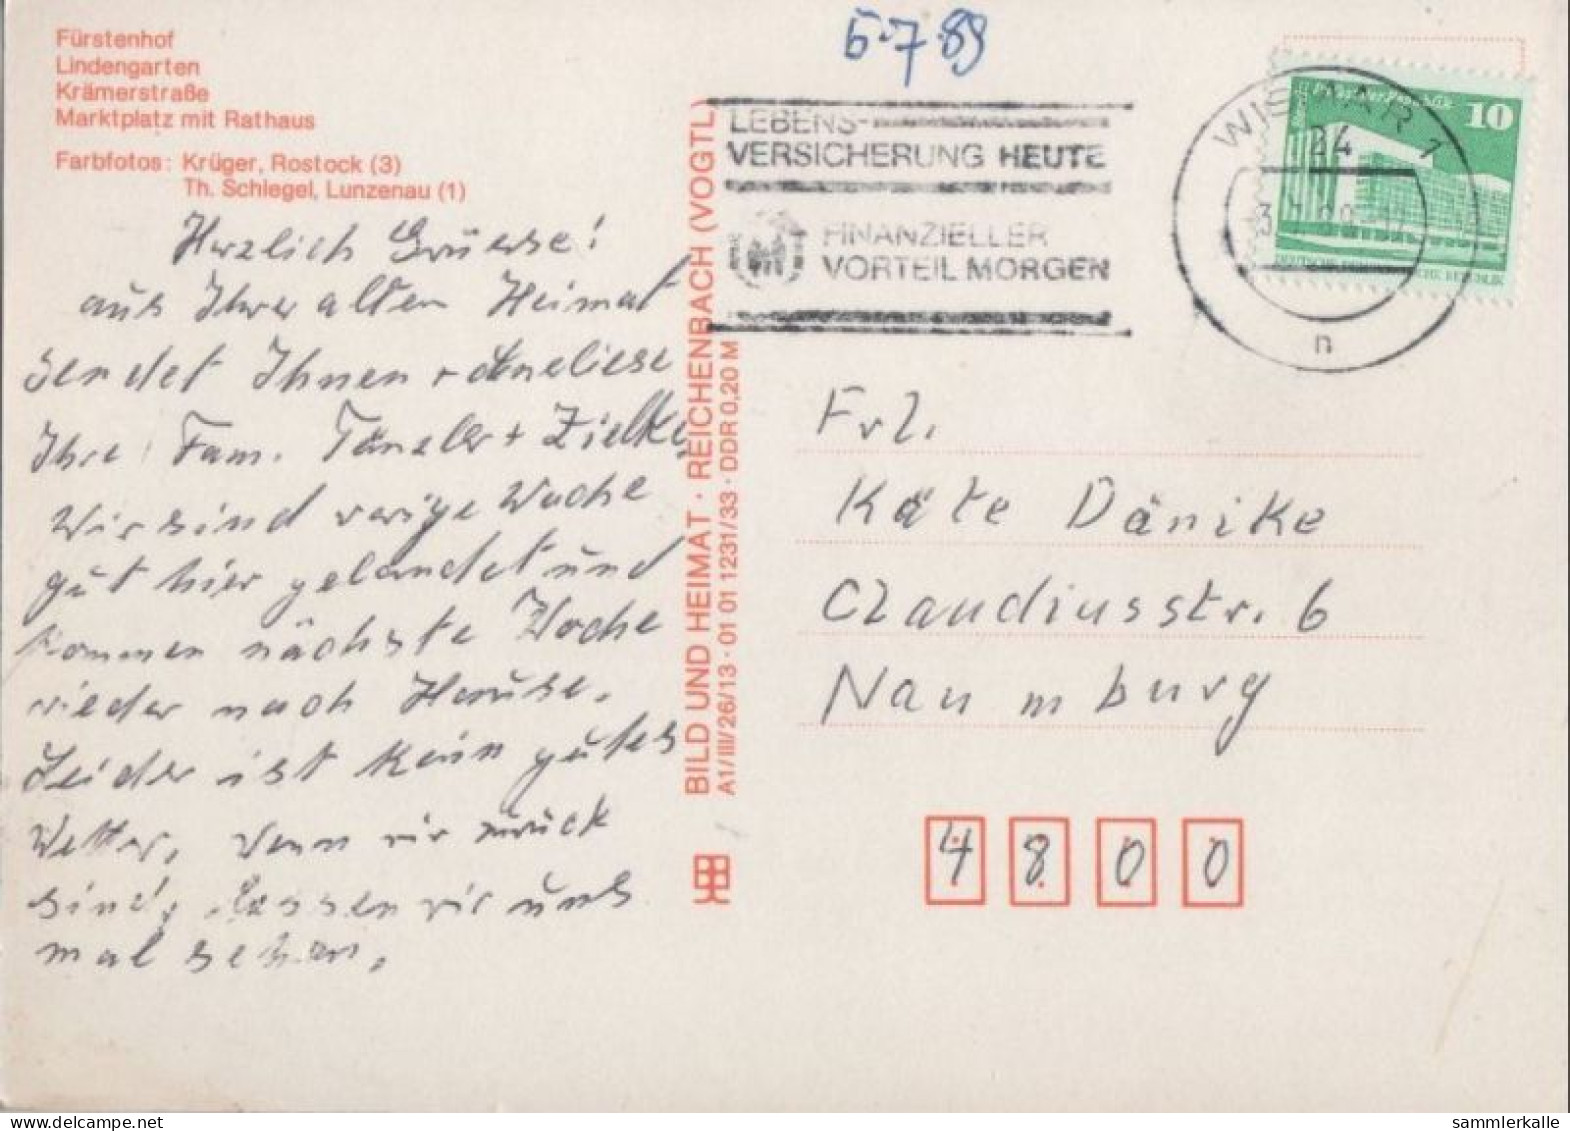 Fürstenhof
Lindengarten
Krämerstraße
Marktplatz mit Rathaus
Farbfotos: Krüger, Rostock (3)
Th. Schlegel, Lunzenau (1)
Herzlich Grüesse!
aus Ihrer alten Heimat
sendet Ihnen + Anneliese
Ihre Fam. Tänzler + Zielke
Wir sind vorige Woche
gut hier gelandet und
kommen nächste Woche
wieder nach Hause.
Leider ist kein gutes
Wetter, Wenn wir zurück
sind, lassen wir uns
mal sehen.
BILD UND HEIMAT · REICHENBACH (VOGTL)
A1/III/26/13 · 01 01 1231/33 · DDR 0,20 M
5.7.89
LEBENS-
VERSICHERUNG HEUTE
FINANZIELLER
VORTEIL MORGEN
WISMAR 1
24
n
10
Frl.
Käte Dänike
Claudiusstr. 6
Naumburg
4800
www.delcampe.net
sammlerkalle